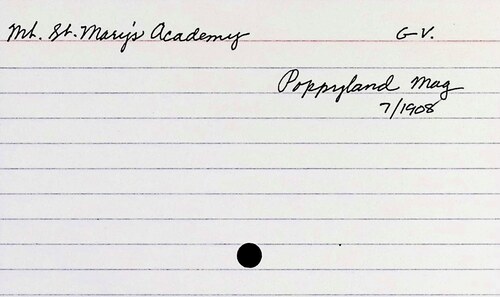 Mt. St. Mary's Academy G V.
Poppyland Mag
7/1908